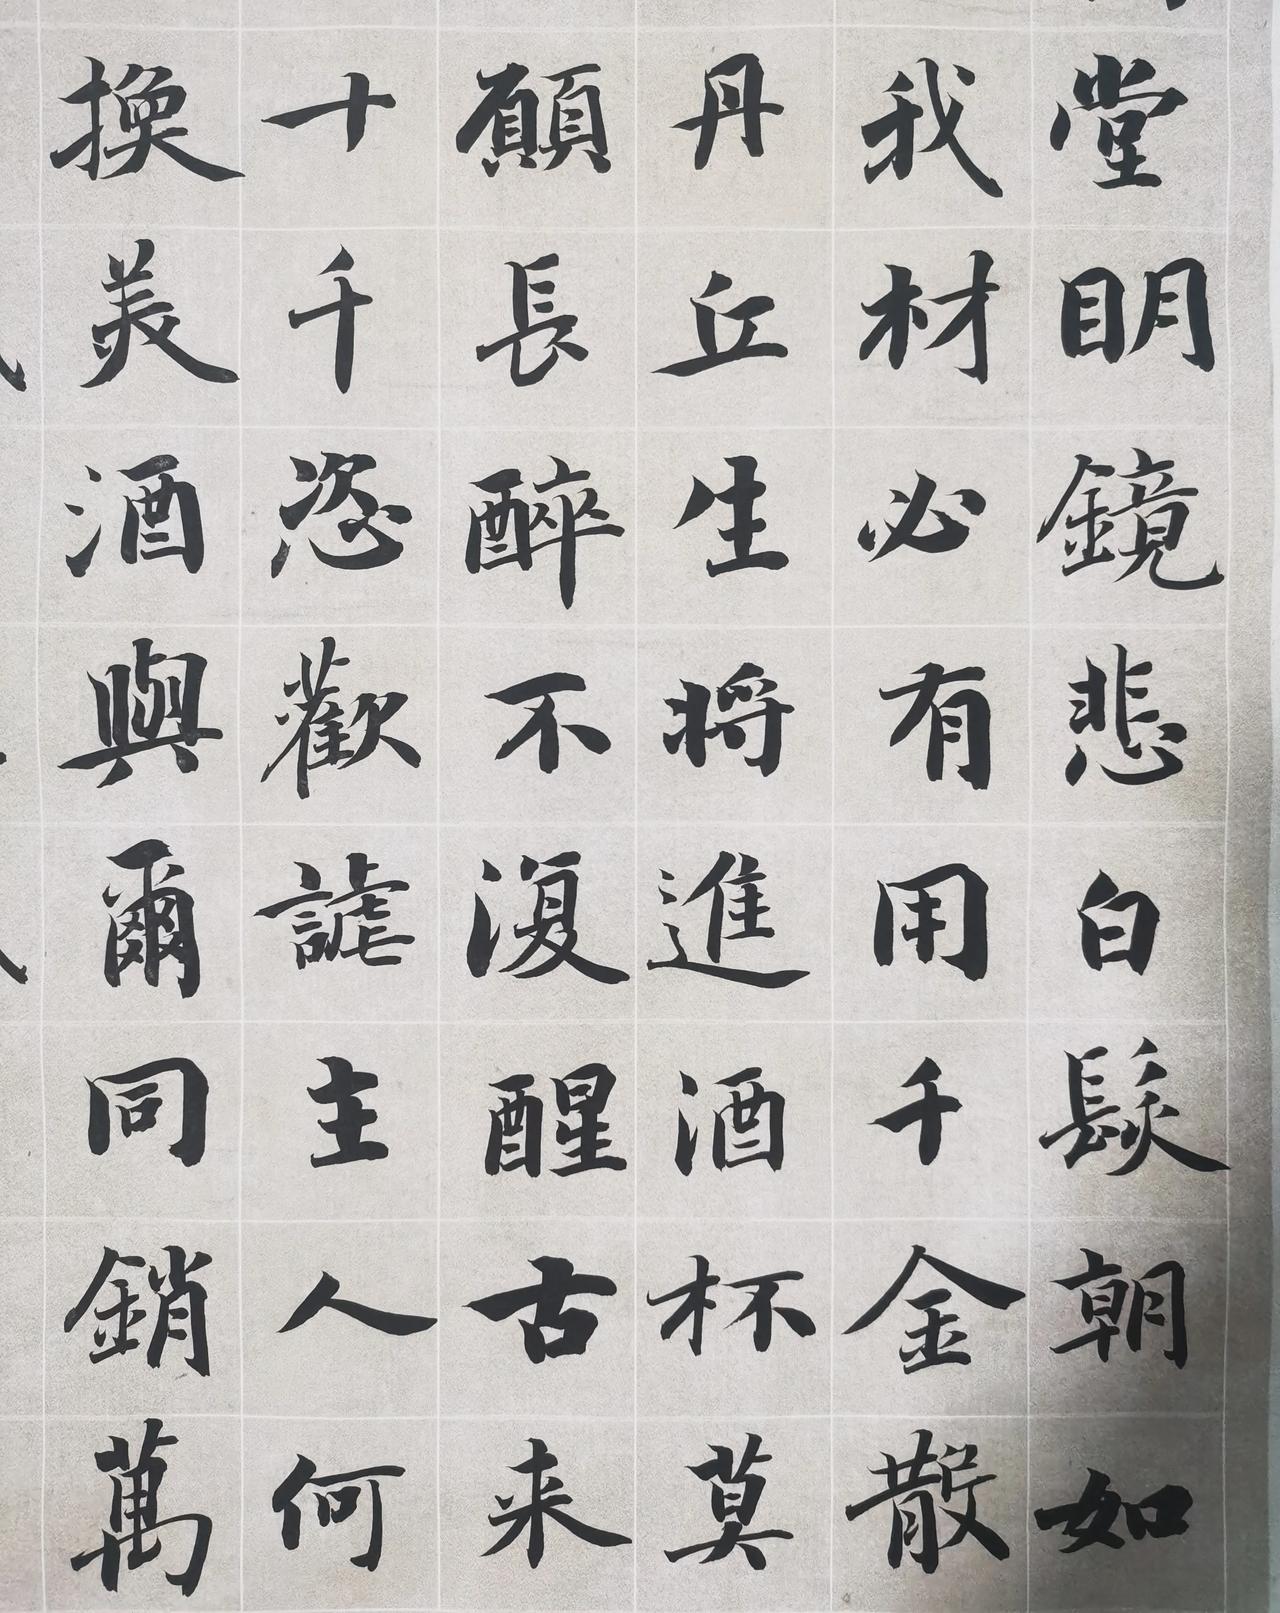 堂明鏡悲白髮朝如
我材必有用千金散
丹丘生將進酒杯莫
願長醉不復醒古来
十千恣歡謔主人何
換美酒與爾同銷萬